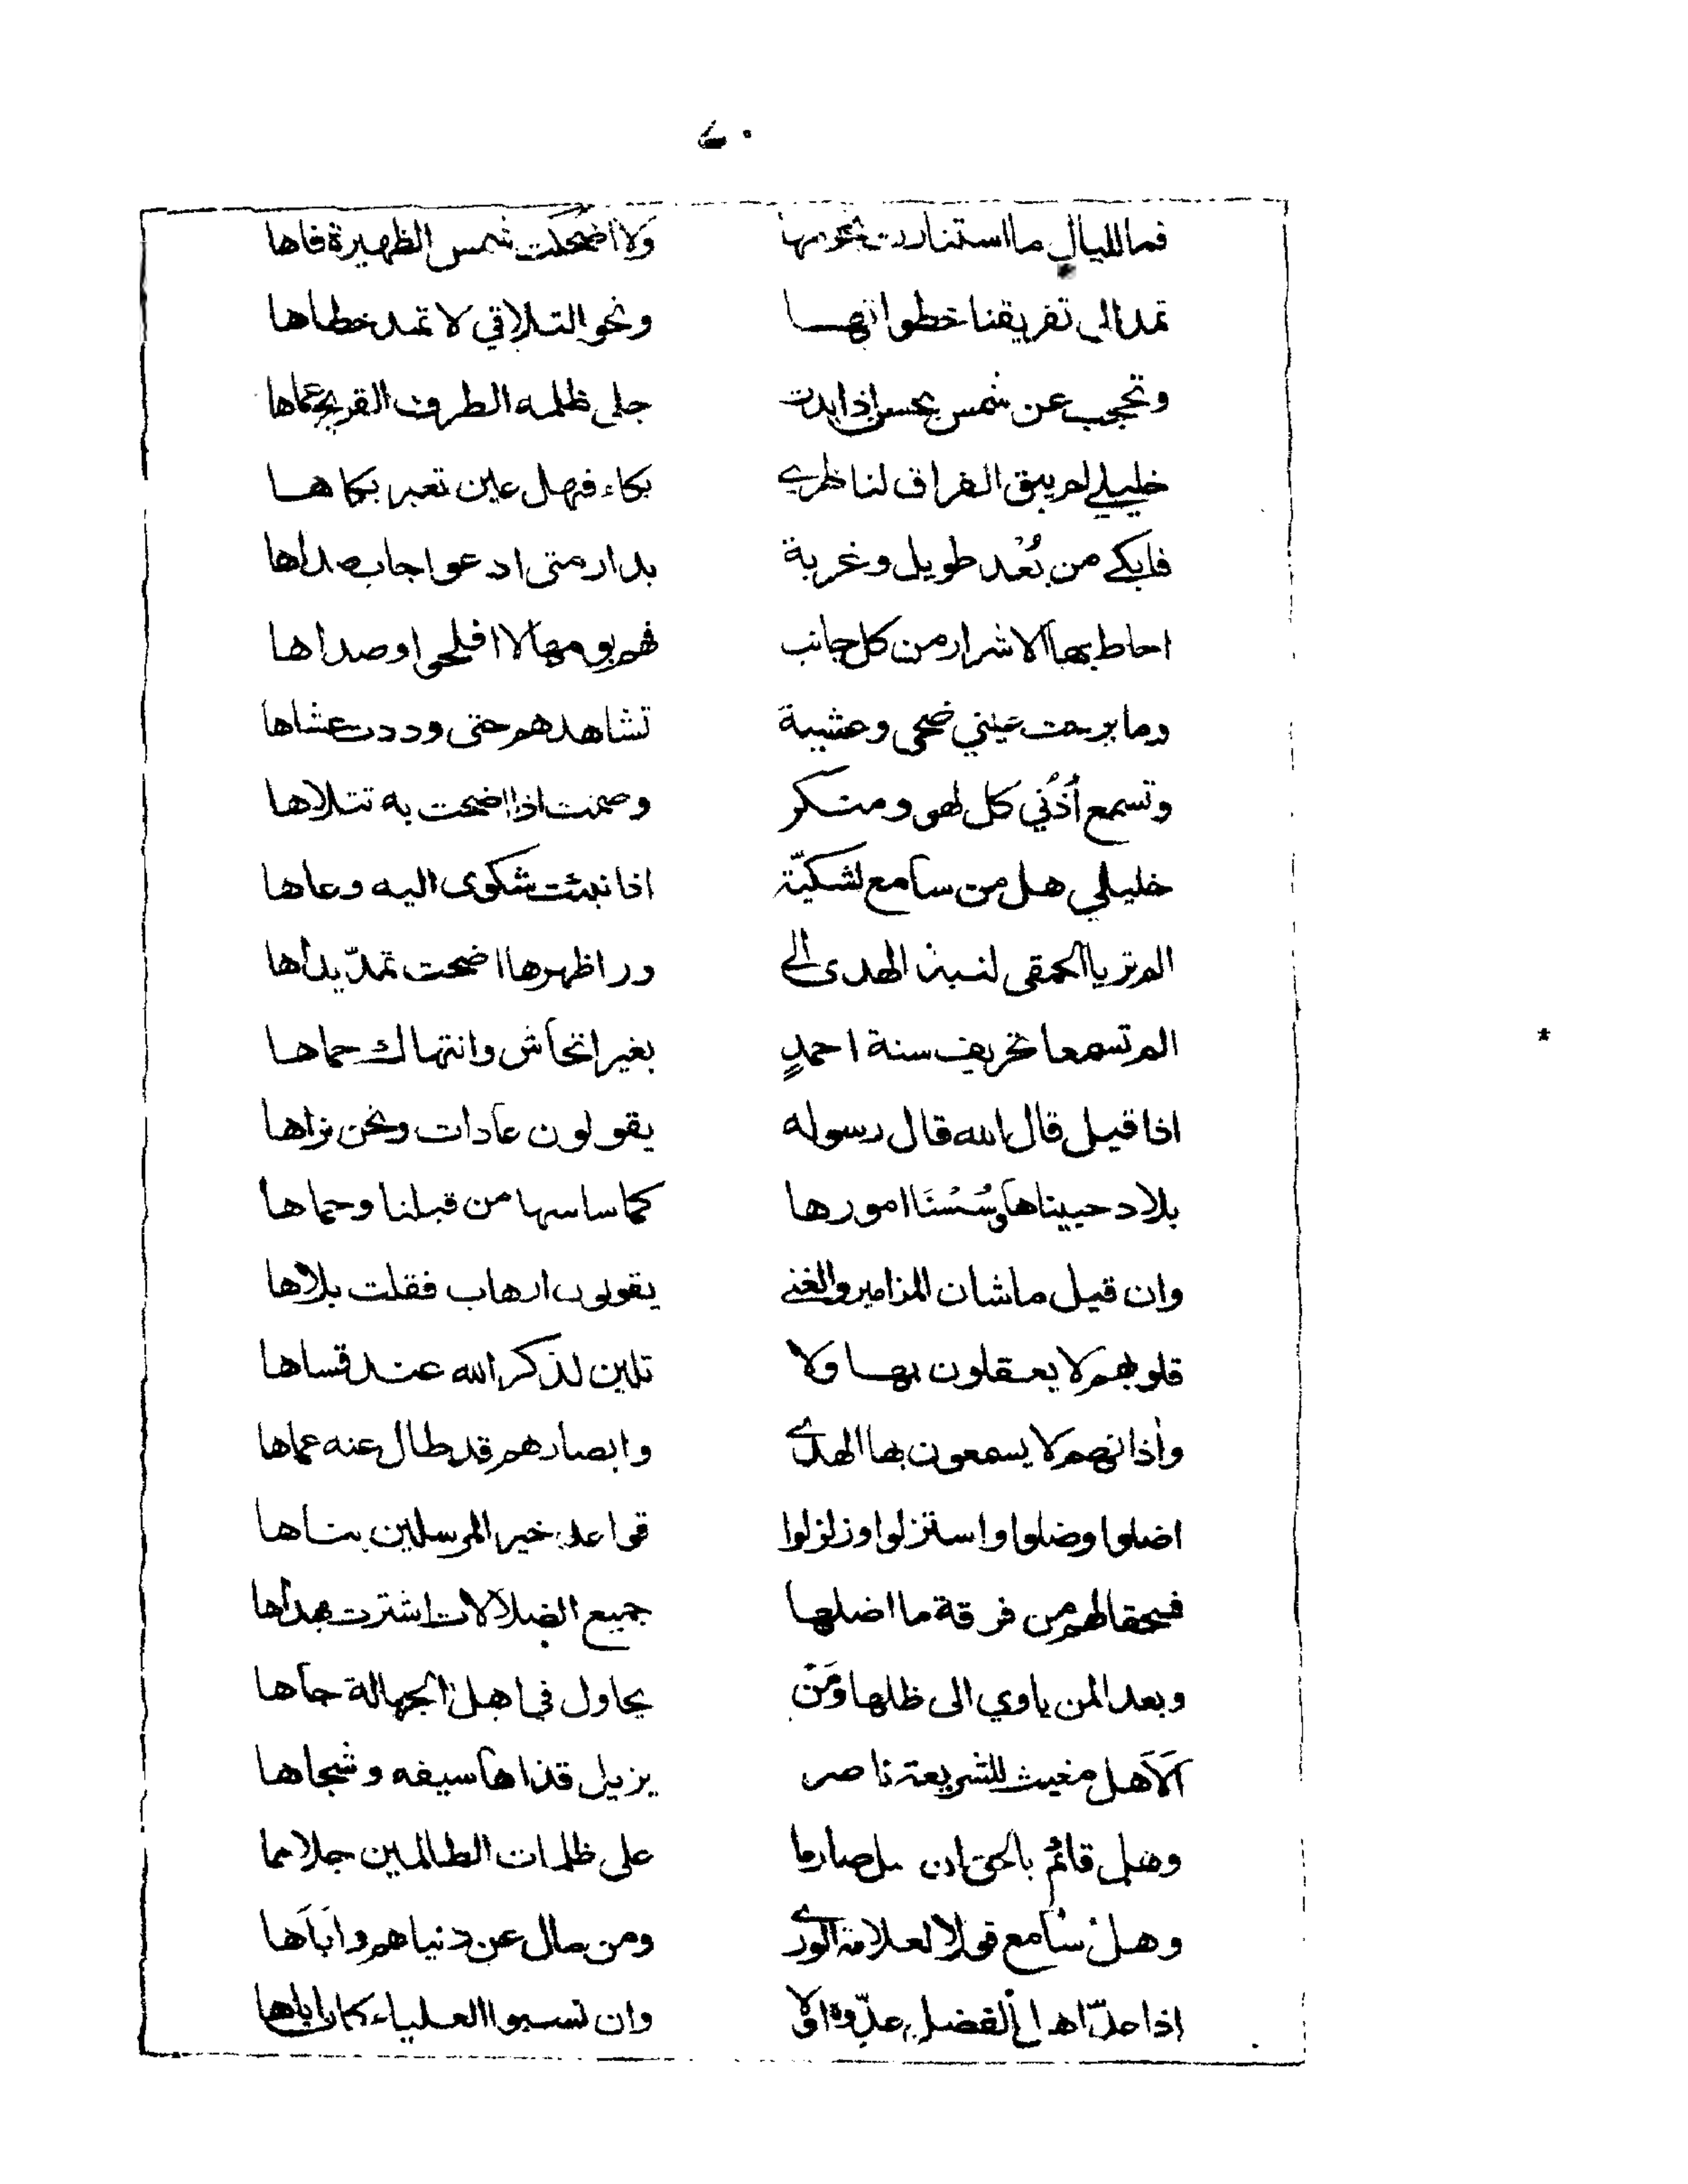 فما لليالٍ ما استنارت نجومها ولا اضحكت شمس الظهيرة فاها
تمد الى تفريقنا خطواتها ونحو التلاقي لا تمد خطاها
وتحجب عن شمس بحسن اذا بدت جلى ظلمه الطرف القريح عماها
خليلي لم يبق الفراق لناظري بكاء فهل عين تعير بكاها
فابكي من بُعْد طويل وغربة بدار متى ادعو اجاب صداها
احاط بها الاشرار من كل جانب فهم بومها لا افلحوا وصداها
وما برحت عيني ضحى وعشية تشاهدهم حتى وددت عشاها
وتسمع أذُني كل لهو ومنكر وصمت اذا اضحت به تتلاها
خليلي هل من سامع لشكيّة اذا نبئت شكوى اليه وعاها
الم تر يا الحمقى لنبذ الهدى الى ورا ظهرها اضحت تمدّ يداها
الم تسمعا تحريف سنة احمدٍ بغير انحاش وانتهاك حماها
اذا قيل قال الله قال رسوله يقولون عادات ونحن نراها
بلاد حبيناها وسُسْنَا امورها كما ساسها من قبلنا وحماها
وان قيل ماشان المزامير والغنى يقولون ارهاب فقلت بلاها
قلوبهم لا يعقلون بها ولا تلين لذكر الله عند قساها
وأذانهم لا يسمعون بها الهدى وابصارهم قد طال عنه عماها
اضلوا وضلوا واستزلوا وزلزلوا قواعد خير المرسلين بناها
فسحقا لهم من فرقة ما اضلها جميع الضلالات اشترت بهداها
وبعدا لمن ياوي الى ظلها ومَنْ يحاول في اهل الجهالة جاها
ألا هل مغيث للشريعة ناصر يزيل قذاها سيفه وشجاها
وهل قائم بالحق ان سل صارما على ظلمات الظالمين جلاها
وهل سامع قولا لعلامة الورى ومن مال عن دنياهم وأباها
اذا حلّ اهل الفضل عدّوه اولا وان نسبوا العلياء كان اباها